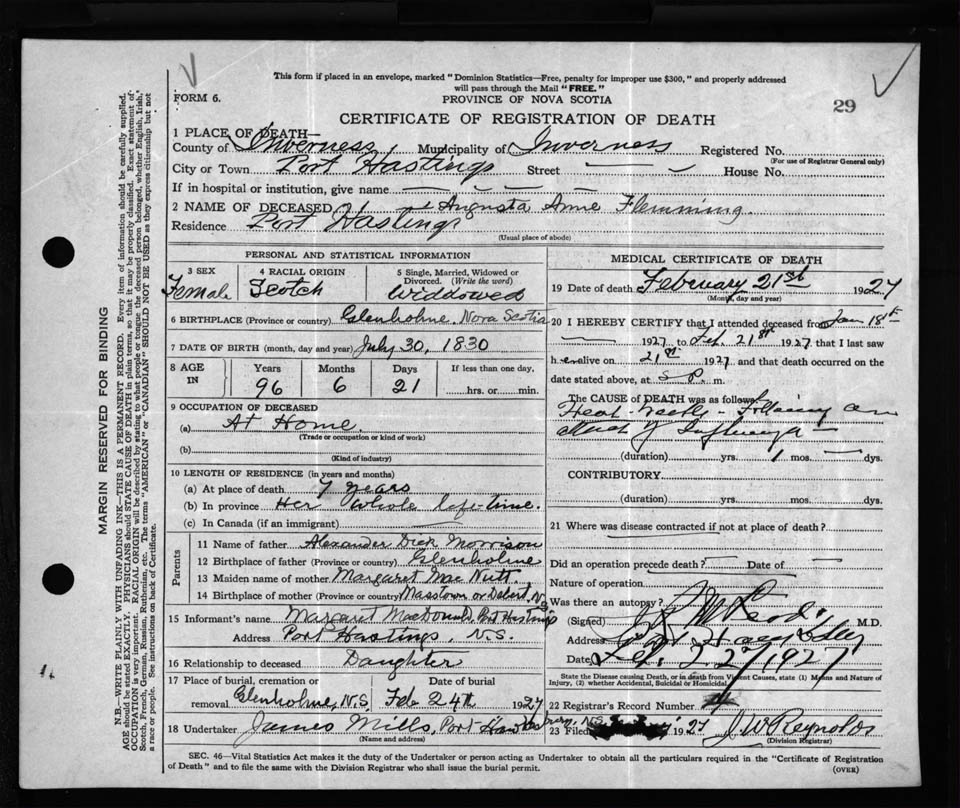 This form if placed in an envelope, marked "Dominion Statistics—Free, penalty for improper use $300," and properly addressed
will pass through the Mail "FREE."
FORM 6.
PROVINCE OF NOVA SCOTIA
29
CERTIFICATE OF REGISTRATION OF DEATH
1 PLACE OF DEATH—
County of Inverness Municipality of Inverness Registered No.
(For use of Registrar General only)
City or Town Port Hastings Street — House No.
If in hospital or institution, give name — — —
2 NAME OF DECEASED Augusta Anne Flemming.
Residence Port Hastings
(Usual place of abode)
PERSONAL AND STATISTICAL INFORMATION
3 SEX Female
4 RACIAL ORIGIN Scotch
5 Single, Married, Widowed or Divorced. (Write the word) Widdowed
6 BIRTHPLACE (Province or country) Glenholme, Nova Scotia
7 DATE OF BIRTH (month, day and year) July 30, 1830
8 AGE IN Years 96 Months 6 Days 21 If less than one day, hrs. or min.
9 OCCUPATION OF DECEASED
(a) At Home.
(Trade or occupation or kind of work)
(b)
(Kind of industry)
10 LENGTH OF RESIDENCE (in years and months)
(a) At place of death 7 years
(b) In province Her whole life-time.
(c) In Canada (if an immigrant) —
Parents
11 Name of father Alexander Dick Morrison
12 Birthplace of father (Province or country) Glenholme
13 Maiden name of mother Margaret MacNutt.
14 Birthplace of mother (Province or country) Masstown or Debert, N.S
15 Informant's name Margaret MacDonald, Port Hastings
Address Port Hastings, N.S.
16 Relationship to deceased Daughter
17 Place of burial, cremation or removal Glenholme, N.S. Date of burial Feb 24th 1927
18 Undertaker James Mills, Port Hawkesbury, N.S.
(Name and address)
MEDICAL CERTIFICATE OF DEATH
19 Date of death February 21st 1927
(Month, day and year)
20 I HEREBY CERTIFY that I attended deceased from Jan 18th
— 1927 to Feb. 21st 1927 that I last saw
her alive on 21st 1927 and that death occurred on
date stated above, at 5 P. m.
The CAUSE of DEATH was as follows:
Following an
attack of Influenza —
(duration) yrs. 1 mos. — dys.
CONTRIBUTORY.
(duration) yrs. mos. dys.
21 Where was disease contracted if not at place of death?
Did an operation precede death? — Date of —
Nature of operation
Was there an autopsy?
(Signed) McLeod M.D.
Address
Date Feb. 1927
State the Disease causing Death, or in death from Violent Causes, state (1) Means and Nature of
Injury, (2) whether Accidental, Suicidal or Homicidal.
22 Registrar's Record Number
23 Filed 1927 J W Reynolds
(Division Registrar)
SEC. 46—Vital Statistics Act makes it the duty of the Undertaker or person acting as Undertaker to obtain all the particulars required in the "Certificate of Registration
of Death" and to file the same with the Division Registrar who shall issue the burial permit.
(OVER)
MARGIN RESERVED FOR BINDING
N.B.—WRITE PLAINLY WITH UNFADING INK—THIS IS A PERMANENT RECORD. Every item of information should be carefully supplied.
AGE should be stated EXACTLY. PHYSICIANS should STATE CAUSE OF DEATH in plain terms, so that it may be properly classified. Exact statement of
OCCUPATION is very important. RACIAL ORIGIN will be described by stating to what people or tongue the deceased person belonged, whether English, Irish,
Scotch, French, German, Russian, Ruthenian, etc. The terms "AMERICAN" or "CANADIAN" SHOULD NOT BE USED as they express citizenship but not
a race or people. See instructions on back of Certificate.